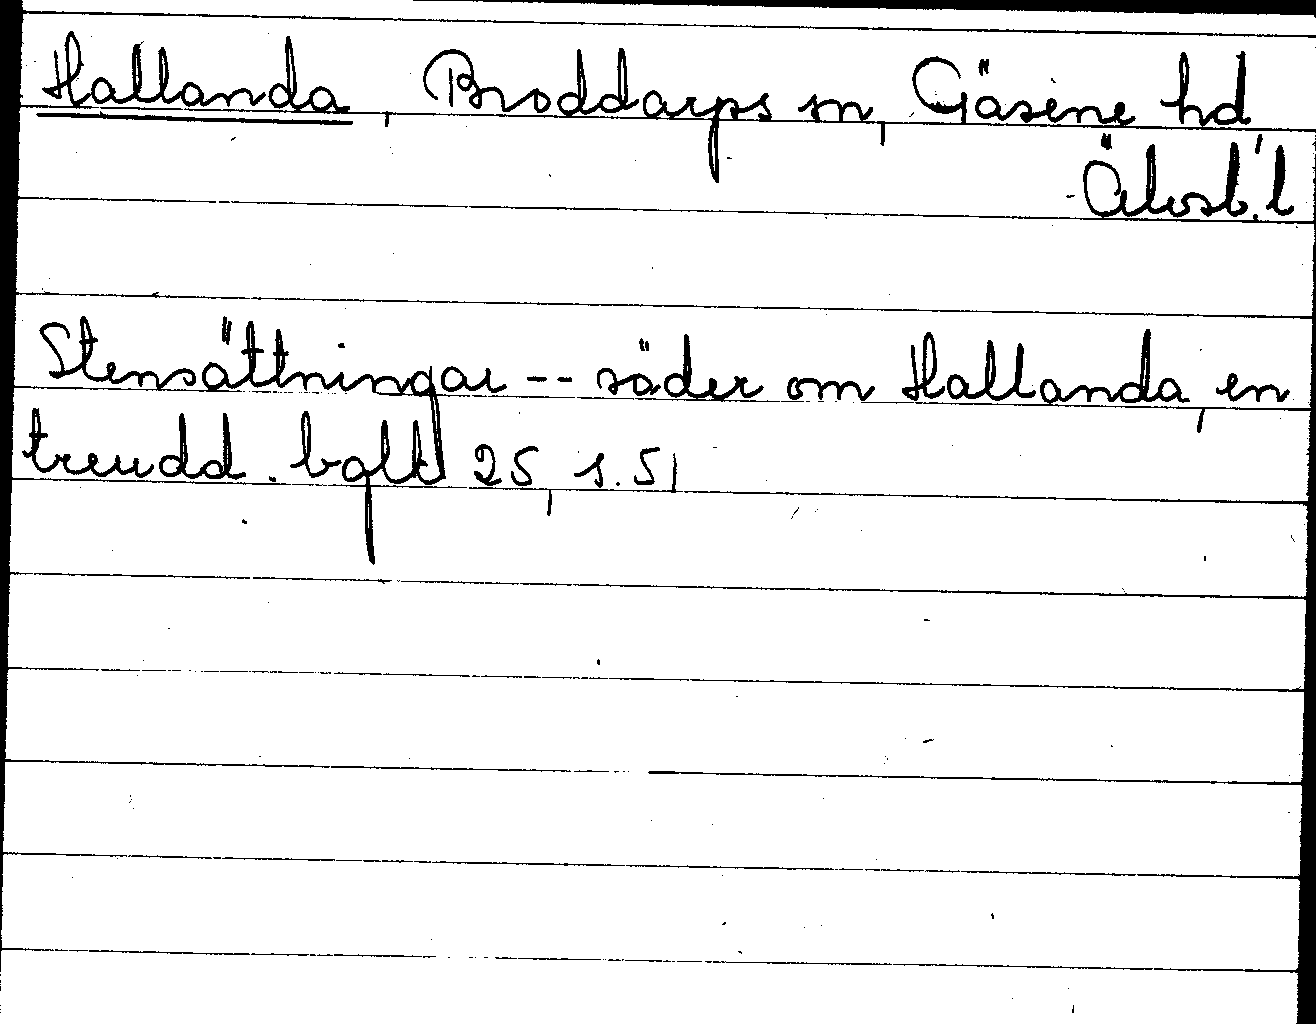 Hallanda, Broddarps sn, Gäsene hd
Älvsb. l
Stensättningar -- söder om Hallanda, en
treudd. 25, s. 51